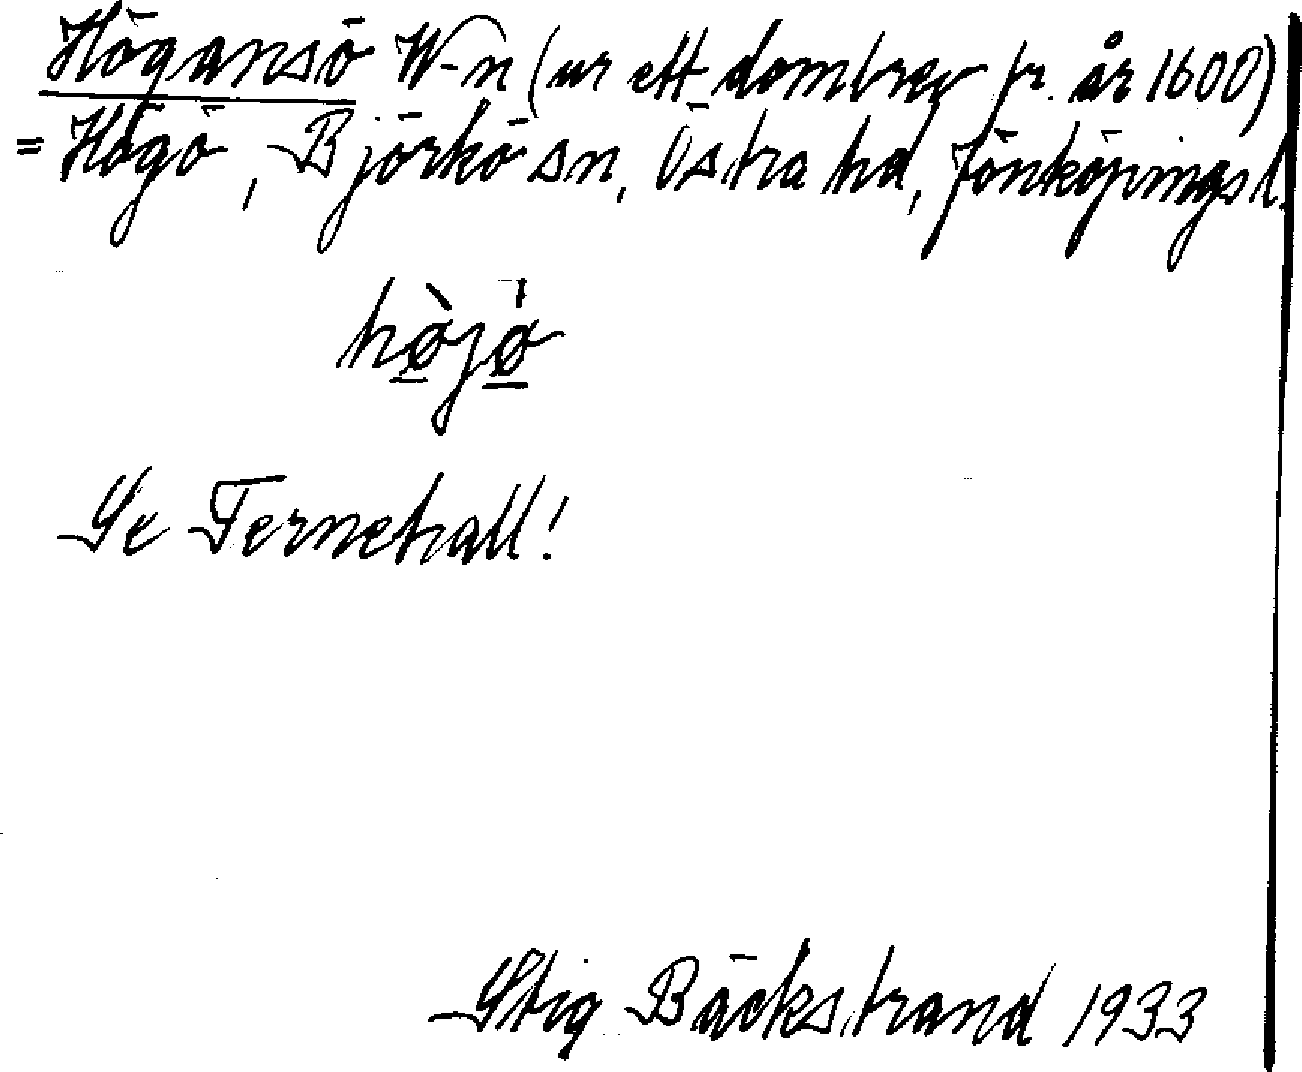 Högansö W-n (ur ett dombrev fr. år 1600)
= Högö, Björkö sn, Östra hd, Jönköpings l.
hø̀jø
Se Fernehall!
Stig Bäckstrand 1933